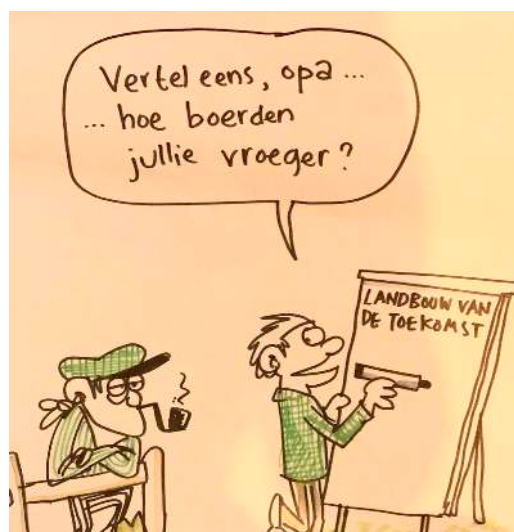 Vertel eens, opa ...
... hoe boerden
jullie vroeger?
LANDBOUW VAN
DE TOEKOMST